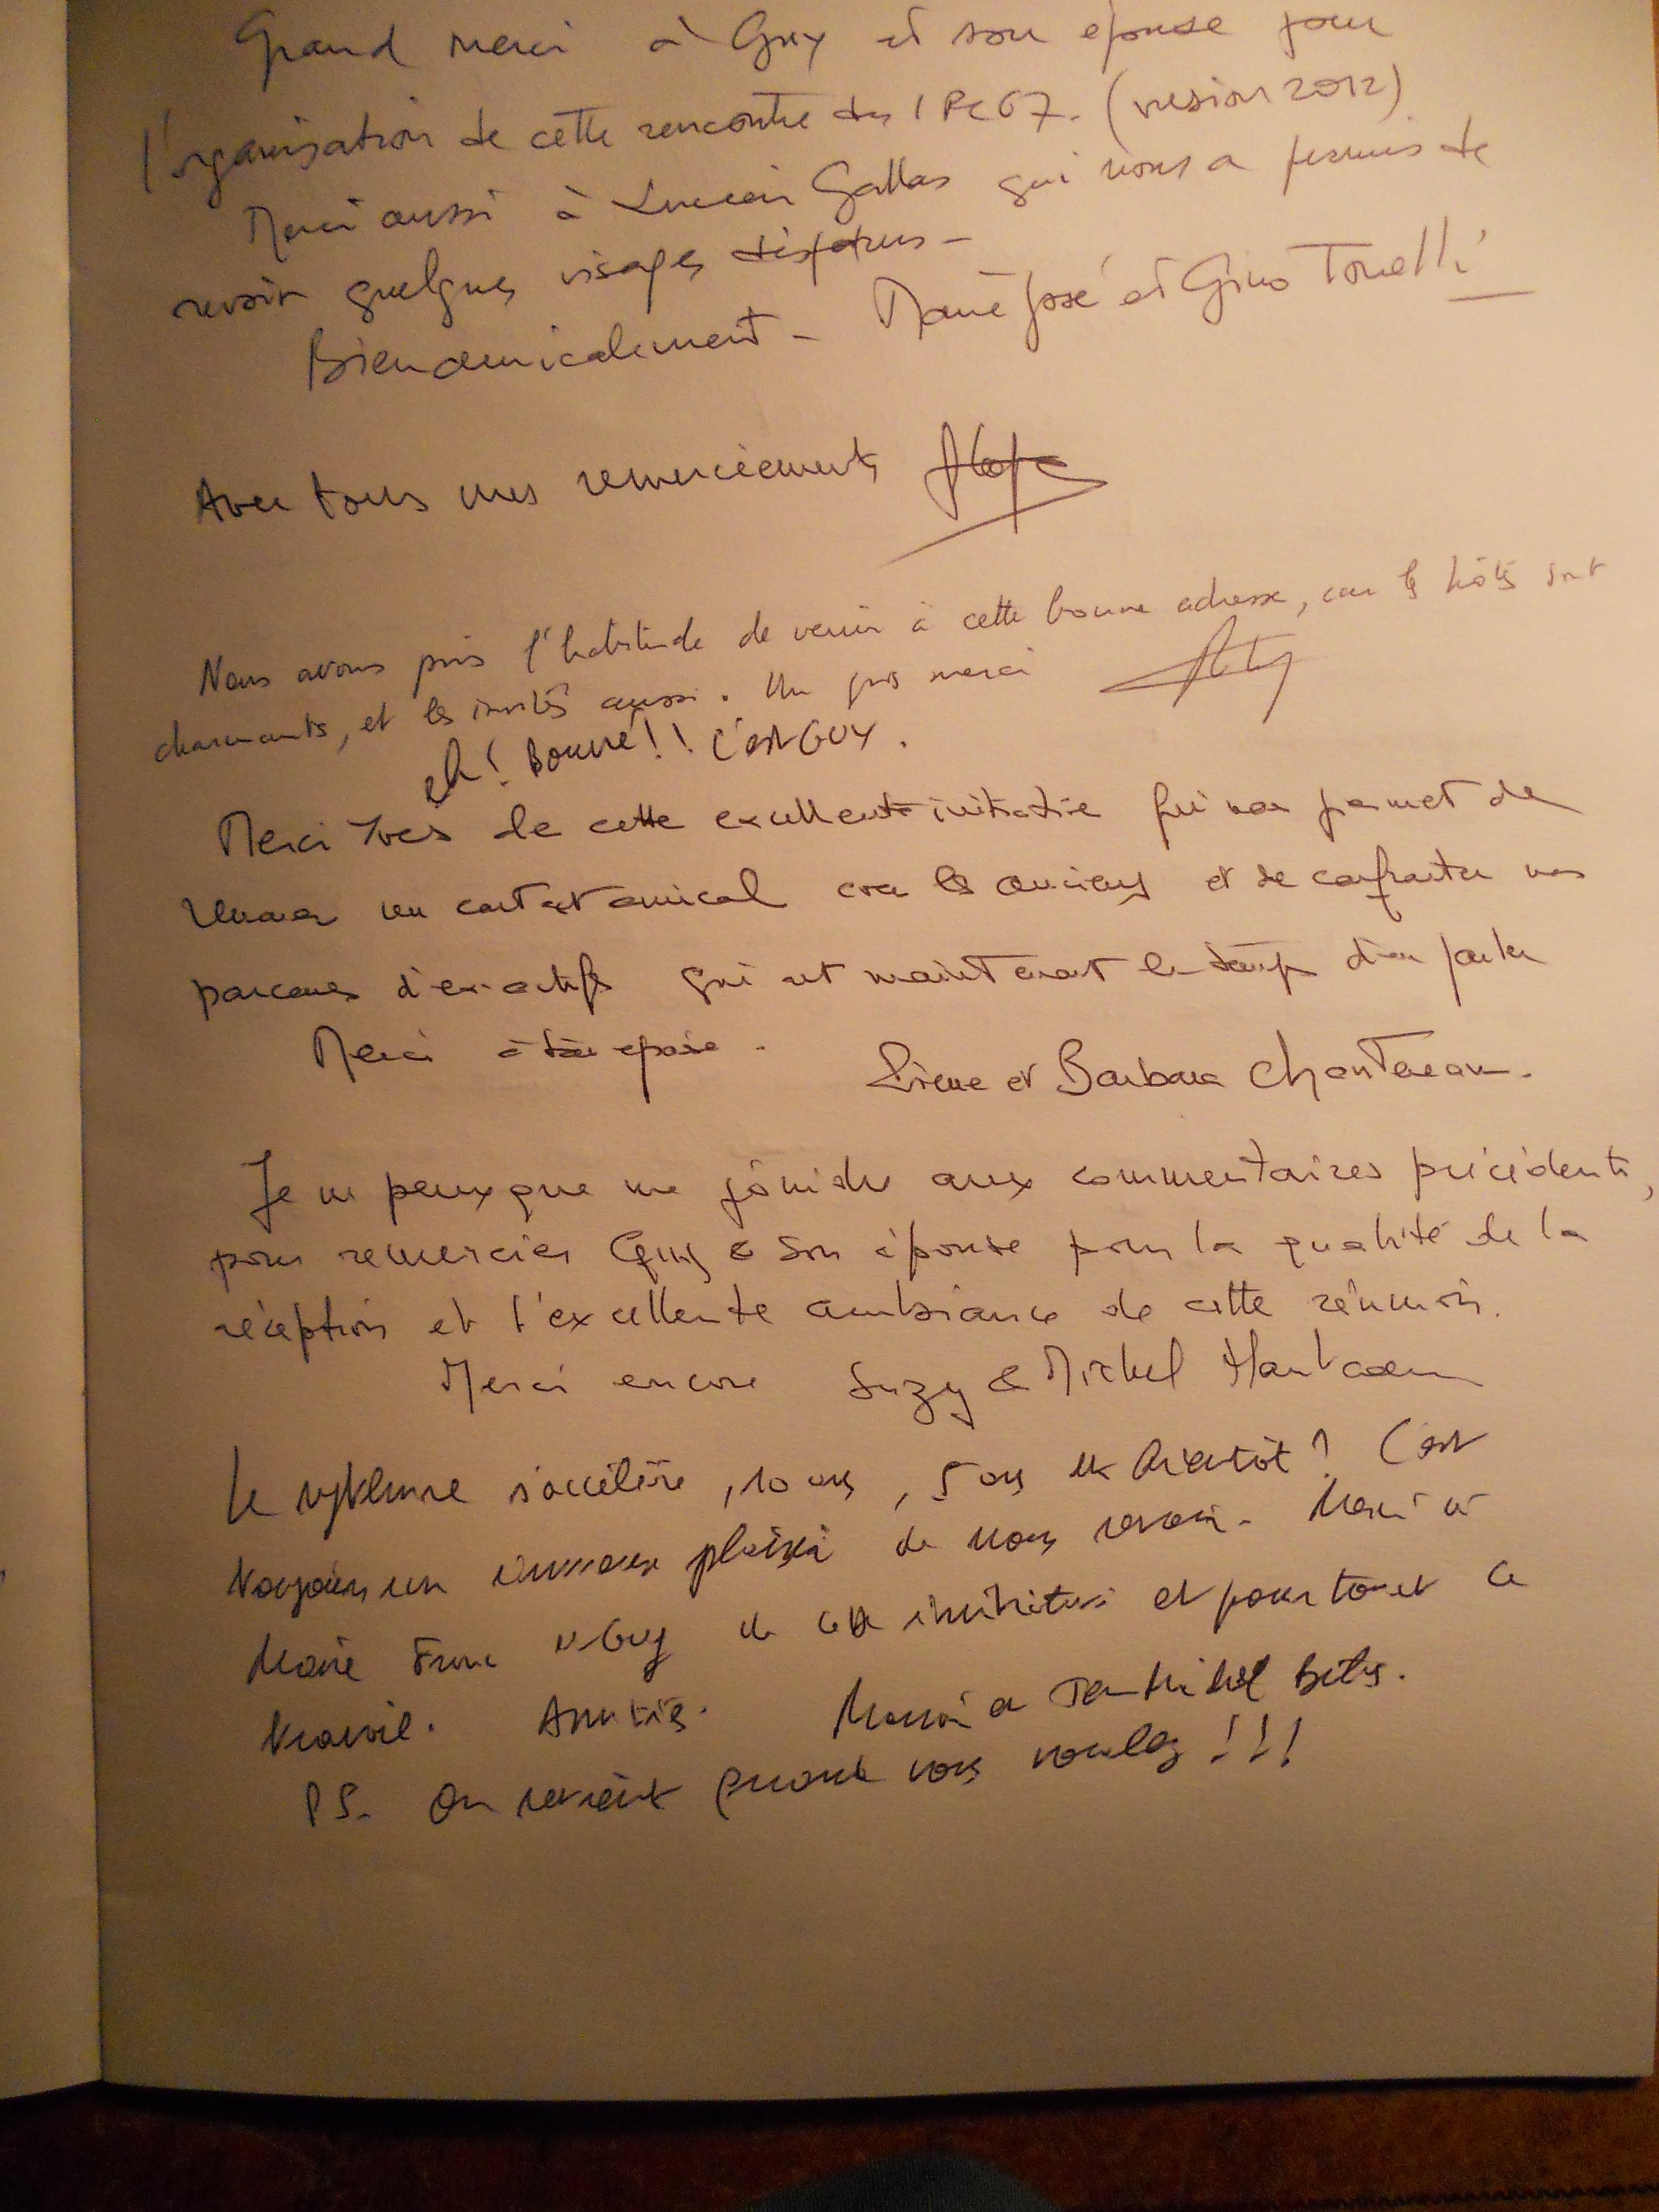 Grand merci à Guy et son épouse pour
l'organisation de cette rencontre des IPC67. (version 2012)
Merci aussi à Lucien Gallas qui nous a permis de
revoir quelques visages disparus -
Bien amicalement - Marie José et Gino Tonelli
Avec tous mes remerciements
Nous avons pris l'habitude de venir à cette bonne adresse, car les hôtes sont
charmants, et les invités aussi. Un gros merci
eh! Bourré!! C'est GUY.
Merci Yves de cette excellente initiative qui nous permet de
renouer un contact amical avec les anciens et de confronter nos
parcours d'ex-actifs qui ont maintenant le temps d'en parler
Merci à ton épouse.
Pierre et Barbara Chantereau.
Je ne peux que me joindre aux commentaires précédents,
pour remercier Guy & son épouse pour la qualité de la
réception et l'excellente ambiance de cette réunion.
Merci encore Suzy & Michel Hautcoeur
Le rythme s'accélère, 10 ans, 5 ans et bientôt? C'est
toujours un immense plaisir de nous revoir. Merci à
Marie et Guy de cette invitation et pour tout ce
travail. Amitiés. Jean Michel
PS. On revient quand vous voulez!!!